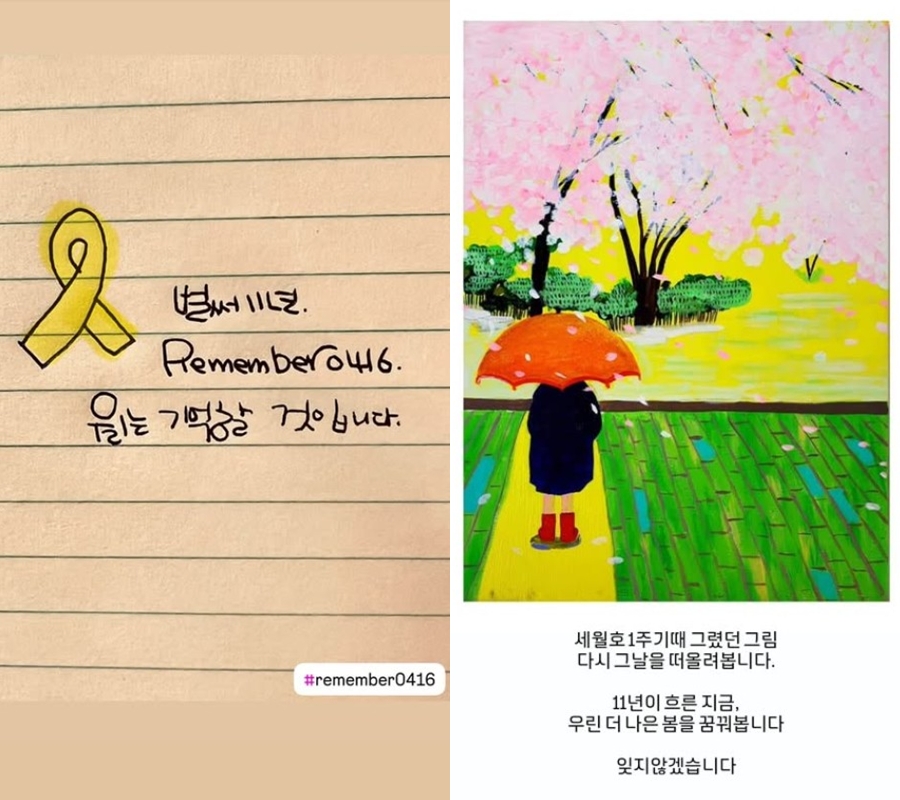 벌써 11년.
Remember0416.
우리는 기억할 것입니다.
#remember0416
세월호1주기때 그렸던 그림
다시 그날을 떠올려봅니다.
11년이 흐른 지금,
우린 더 나은 봄을 꿈꿔봅니다
잊지않겠습니다